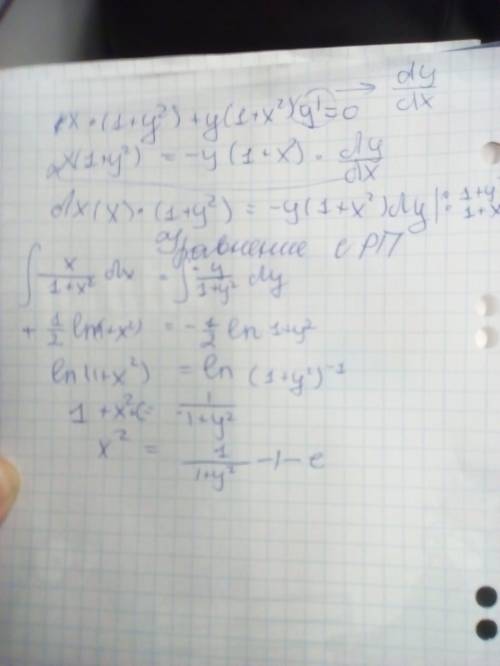 x·(1+y²)+y(1+x²)y'=0 → dy/dx
x(1+y²) = -y(1+x)·dy/dx
dx(x)·(1+y²) = -y(1+x²)dy |: 1+y² : 1+x
Уравнение с РП
∫ x/(1+x²) dx = ∫ -y/(1+y²) dy
+ 1/2 ln(1+x²) = -1/2 ln 1+y²
ln(1+x²) = ln (1+y²)⁻¹
1+x²+c = 1/(1+y²)
x² = 1/(1+y²) -1-c